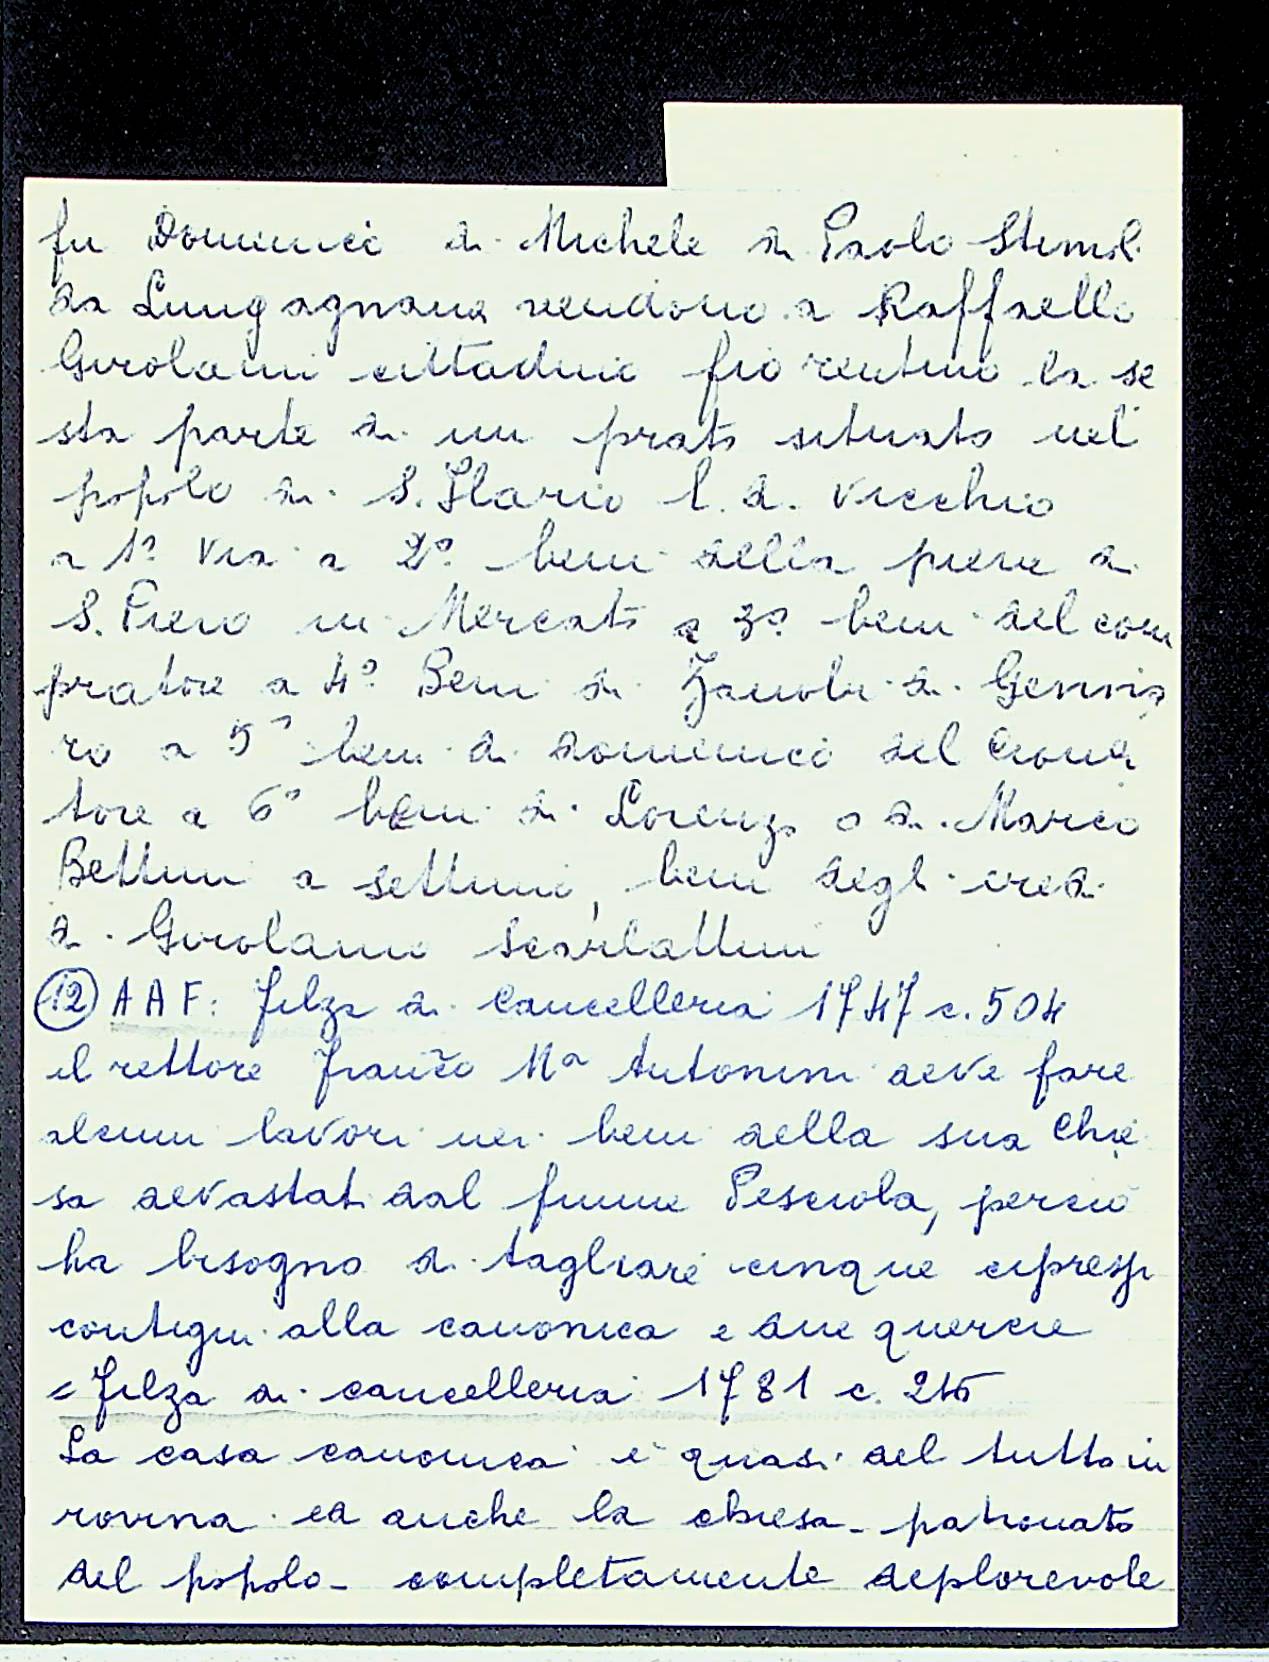 fu Domenico di Michele di Paolo Stimol
da Lungagnana vendono a Raffaello
Girolami cittadino fiorentino la se
sta parte di un prato situato nel
popolo di S. Ilario l. d. vecchio
a 1º via a 2º beni della pieve di
S. Piero in Mercato a 3º beni del com
pratore a 4º Beni di Zanobi di Genna
ro a 5º beni di Domenico del
tore a 6º beni di Lorenzo o di Marco
Bettini a settimo, beni degli eredi
di Girolamo Scarlattini
(12) A A F: filza di Cancelleria 1747 c. 504
il rettore Franco Mª Antonini deve fare
alcuni lavori nei beni della sua Chie
sa devastati dal fiume Pesciola, perciò
ha bisogno di tagliare cinque cipressi
contigui alla canonica e due quercie
= filza di cancelleria 1781 c.
La casa canonica è quasi del tutto in
rovina ed anche la chiesa - patronato
del popolo - completamente deplorevole